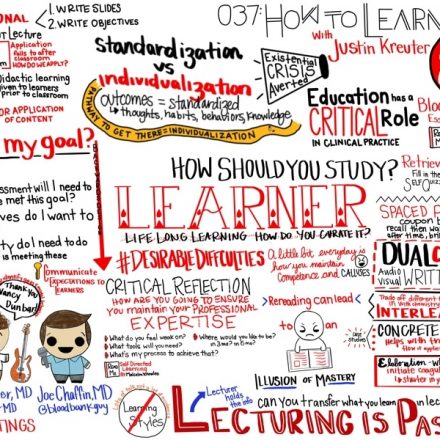 ONAL
1. WRITE SLIDES
2. WRITE OBJECTIVES
OT LECTURE
Application
fails to after
classroom
HOW DO WE APPLY?
Didactic learning
given to learners
prior to classroom
FOR APPLICATION
OF CONTENT
my goal?
sessment will I need to
e met this goal?
ves do I want to
ty do I need to do
is meeting these
Communicate
EXPECTATIONS
to LEARNERS
Thank You
Nancy
Dunbar!
or, MD
Joe Chaffin, MD
@bloodbankguy
TINGS
Standardization
vs
individualization
outcomes = standardized
thoughts, habits, behaviors, knowledge
PATHWAY TO GET THERE = INDIVIDUALIZATION
037: HOW TO LEARN
with Justin Kreuter
Existential
CRISIS
Averted
Education has a
CRITICAL Role
IN CLINICAL PRACTICE
HOW SHOULD YOU STUDY?
LEARNER
LIFE LONG LEARNING HOW DO YOU CURATE IT?
#DESIRABLE DIFFICULTIES
A little bit everyday is
how you maintain
Competence and CALLUSES
CRITICAL REFLECTION
HOW ARE YOU GOING TO ENSURE
YOU MAINTAIN YOUR PROFESSIONAL
EXPERTISE
What do you feel weak on?
What tools will you need?
What's my process to achieve that?
Where would you like to be?
Self Directed
Learning
By Malcolm Knowles
Learning
Styles
Rereading can lead
to
an
ILLUSION OF MASTERY
Lecturer
holds the
info
can you transfer what you learn in
LECTURING IS PAS
Bloo
Ess
Retrie
Fill in the
SELF QUIZ
SPACED
coupon b
recall then wa
after time, bri
DUAL
Audio
Visual
WRITI
Trade off different
INTERLE
CONCRETE
Helps with tr
Elaboration
initiate coagul